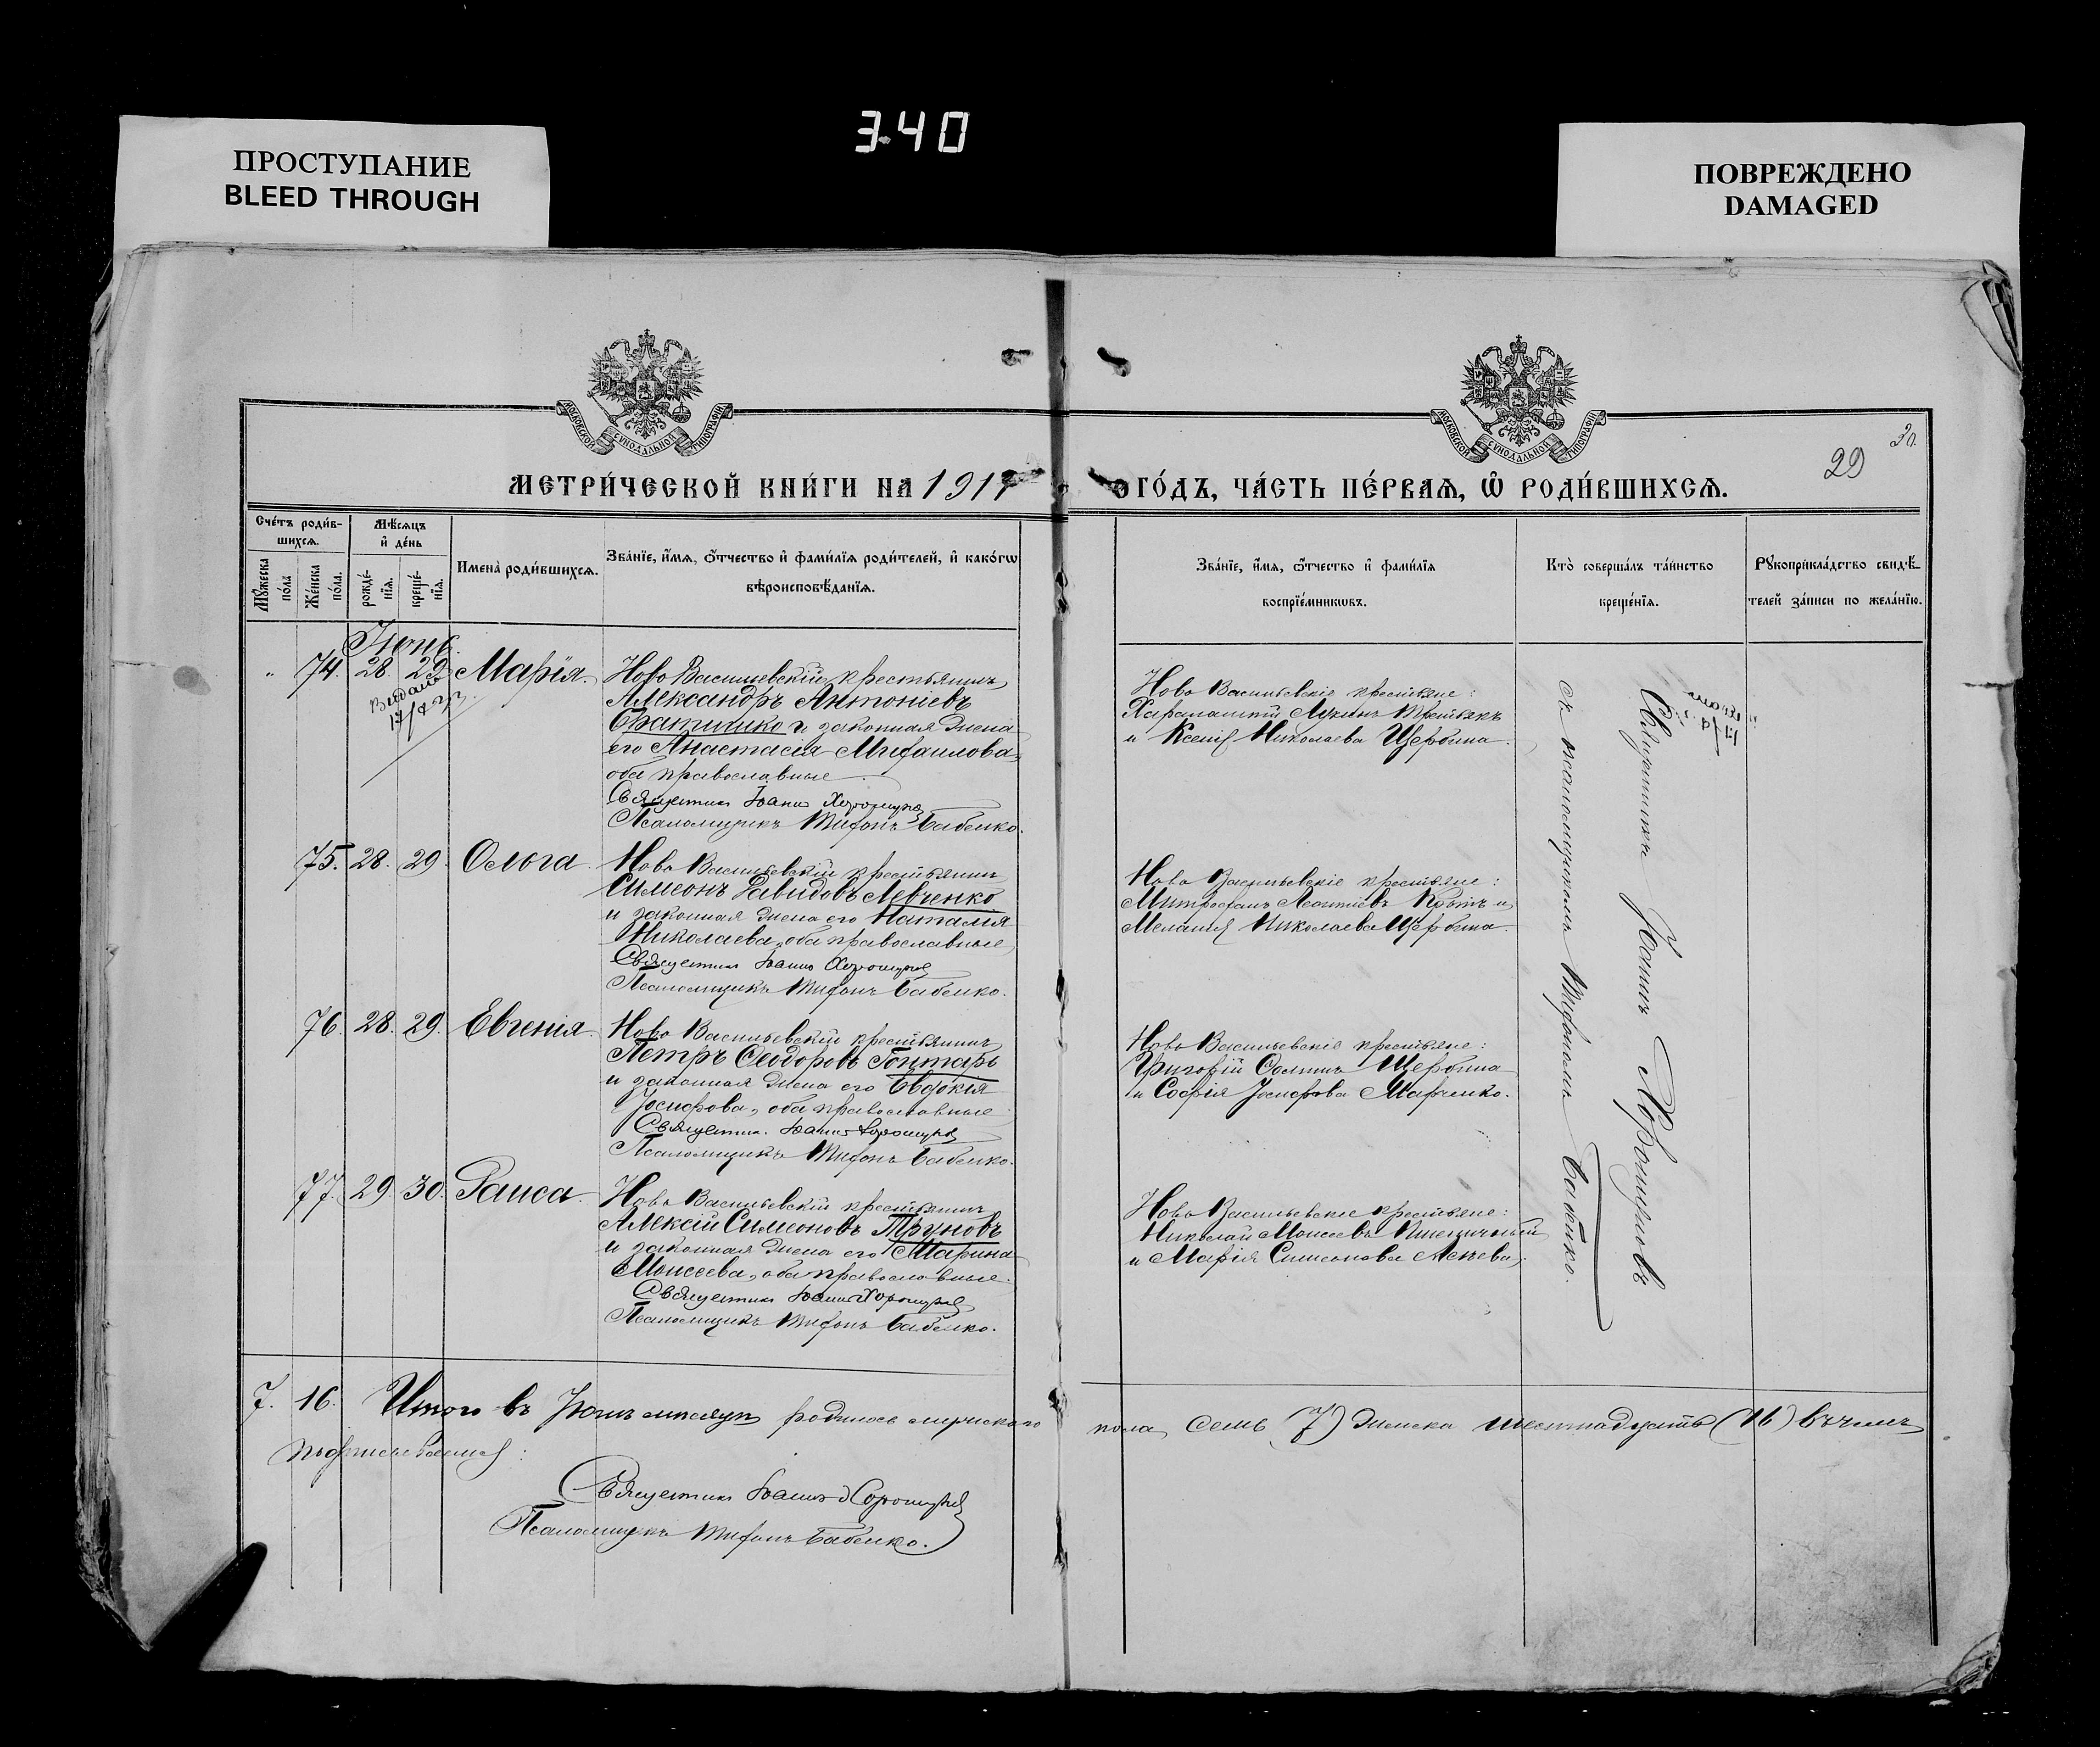 ПРОСТУПАНИЕ
BLEED THROUGH
3.40
ПОВРЕЖДЕНО
DAMAGED
МОСКОВСКОЙ СУНОДАЛЬНОЙ ТИПОГРАФІИ
МОСКОВСКОЙ СУНОДАЛЬНОЙ ТИПОГРАФІИ
30.
29
МЕТРИ́ЧЕСКОЙ КНИ́ГИ НА 1917 ГО́ДЪ, ЧА́СТЬ ПЕ́РВАѦ, Ѡ РОДИ́ВШИХСѦ.
Сче́тъ роди́вшихсѧ.
Мꙋ́жеска по́ла
Же́нска по́ла.
Мѣ́сѧцъ и҆ де́нь
рожде́нїѧ.
креще́нїѧ.
Имена̀ роди́вшихсѧ.
Зва́нїе, и҆́мѧ, ѻ҆́тчество и҆ фами́лїѧ роди́телей, и҆ како́гѡ
вѣроисповѣ́данїѧ.
Зва́нїе, и҆́мѧ, ѻ҆́тчество и҆ фами́лїѧ
воспрїе́мникѡвъ.
Кто̀ соверша́лъ та́инство
креще́нїѧ.
Рꙋкоприкла́дство свидѣ́-
телей за́писи по жела́нїю.
Іюнь.
" 74. 28. 29. Марія.
Ново Васильевскій крестьянинъ
Александръ Антоніевъ
и законная жена
его Анастасія Михаилова,
оба православные.
Священникъ Іоаннъ Хорошуновъ
Псаломщикъ Тифонъ Бабенко.
Ново Васильевскіе крестьяне:
Харалампій Лукинъ Третьякъ
и Ксенія Николаева Щербина.
75. 28. 29. Ольга
Ново Васильевскій крестьянинъ
Симеонъ Давидовъ Левченко
и законная жена его Наталія
Николаева, оба православные
Священникъ Іоаннъ Хорошуновъ
Псаломщикъ Тифонъ Бабенко.
Ново Васильевскіе крестьяне:
Митрофанъ Леонтіевъ и
Меланія Николаева Щербина.
76. 28. 29. Евгенія.
Ново Васильевскій крестьянинъ
Петръ Сидоровъ Гонтарь
и законная жена его Евдокія
Іосифова, оба православные
Священникъ Іоаннъ Хорошуновъ
Псаломщикъ Тифонъ Бабенко.
Ново Васильевскіе крестьяне:
Григорій Щербина
и Софія Іосифова Марченко.
77. 29. 30. Раиса.
Ново Васильевскій крестьянинъ
Алексій Симеоновъ Труновъ
и законная жена его Марина
Моисеева, оба православные.
Священникъ Іоаннъ Хорошуновъ
Псаломщикъ Тифонъ Бабенко.
Ново Васильевскіе крестьяне:
Николай Моисеевъ
и Марія Симеонова
Священникъ Іоаннъ Хорошуновъ
съ псаломщикомъ Тифономъ Бабенко.
7. 16. Итого въ Іюнѣ мѣсяцѣ родилось мужскаго пола семь (7) женска шестнадцать (16) въ чемъ
подписываемся:
Священникъ Іоаннъ Хорошуновъ
Псаломщикъ Тифонъ Бабенко.